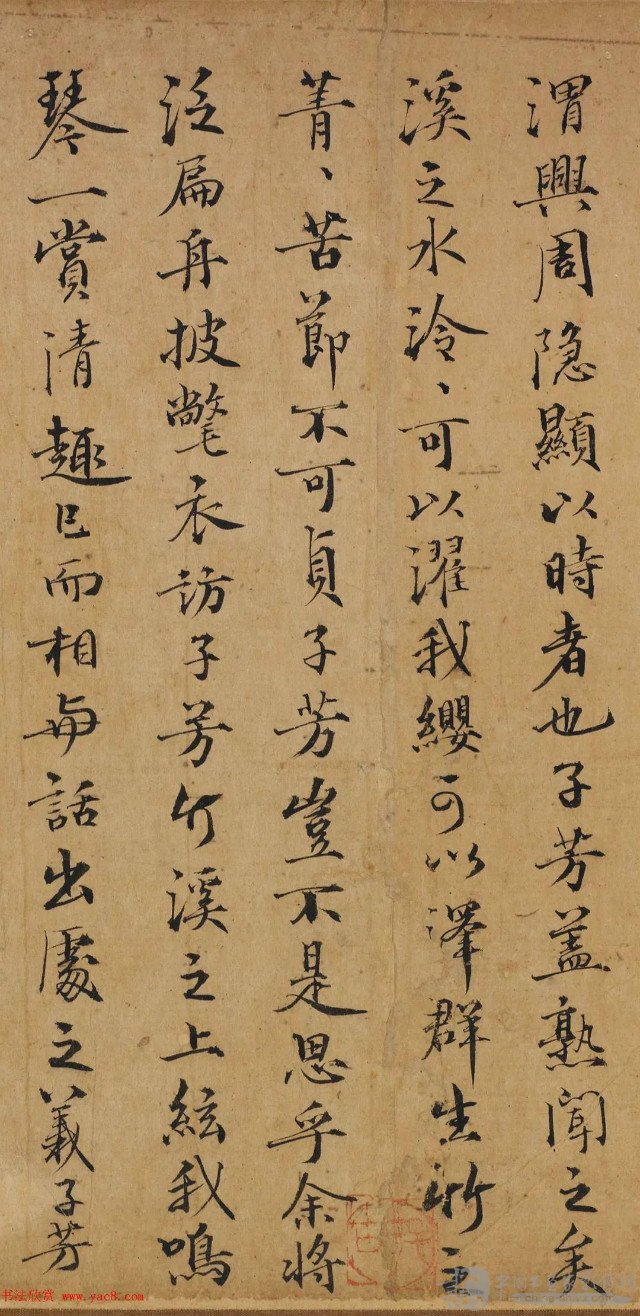 渭興周隐顯以時者也子芳盖熟聞之矣
溪之水泠、可以濯我纓可以澤群生竹之
菁、苦節不可貞子芳豈不是思乎余將
泛扁舟披氅衣訪子芳竹溪之上絃我鳴
琴一賞清趣已而相与話出處之義子芳
书法欣赏 www.yac8.com